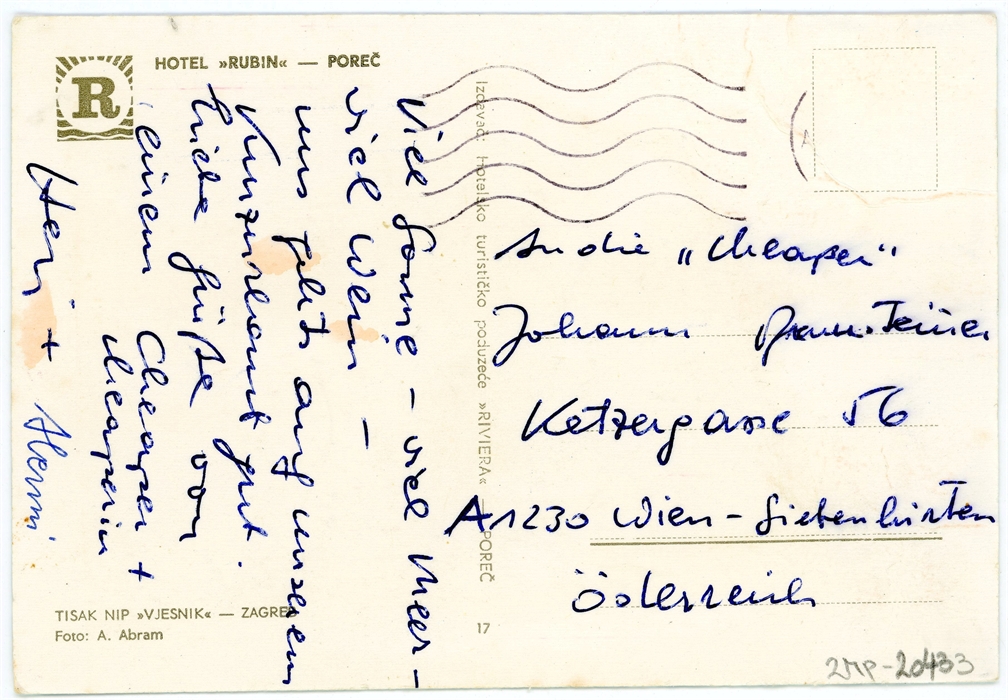 R
HOTEL »RUBIN« — POREČ
Viel Sonne – viel Meer –
viel Wein –
uns gehts auf unserem
Kurzurlaub gut.
Liebe Grüße von
einem Cheaper +
Cheaperin
+ Hermi
TISAK NIP »VJESNIK« — ZAGREB
Foto: A. Abram
Izdavač: hotelsko turističko poduzeće »RIVIERA« — POREČ
17
A
An die „Cheaper“
Johann
Ketzergasse 56
A 1230 Wien - Siebenhirten
Österreich
2MP-20433